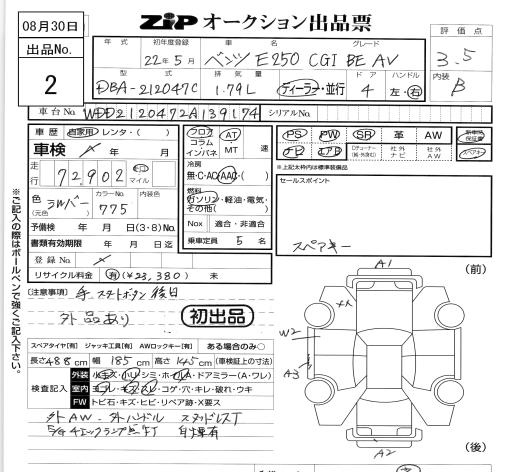 08月30日
出品No.
2
ZIP オークション出品票
評価点
3.5
内装
B
年式
初年度登録
22年5月
車名
ベンツ E250 CGI BE AV
グレード
型式
DBA-212047C
排気量
1.79L
ディーラー・並行
ドア
4
ハンドル
左・右
車台No.
WDD2120472A139174
シリアルNo.
車歴
自家用・レンタ・( )
車検
年 月
走行
72,902
マイル
色
(元色)
シルバー
カラーNo.
775
内装色
予備検 年 月 日(3・8)No.
書類有効期限 年 月 日迄
登録No.
リサイクル料金 有(¥23,380) 未
フロア
コラム
インパネ
AT
MT
速
冷房
無・C・AC・AAC・( )
燃料
ガソリン・軽油・電気・
その他( )
Nox 適合・非適合
乗車定員 5 名
PS PW SR 革 AW
ナビ エアB
社外
ナビ
社外
AW
新車時
保証書
スペアキー
※上記太枠内は標準装備品
セールスポイント
スペアキー
※ご記入の際はボールペンで強くご記入下さい。
[注意事項] キースタートボタン後日
外品あり
初出品
スペアタイヤ[有] ジャッキ工具[有] AWロックキー[有] ある場合のみ○
長さ488cm 幅185cm 高さ145cm (車検証上の寸法)
検査記入
外装 小キズ・小U・シミ・ホイルA・ドアミラー(A・ワレ)
室内 ヨゴレ・キズ・スレ・コゲ・穴・キレ・破れ・ウキ
FW トビ石・キズ・ヒビ・リペア跡・X要ス
外AW 外ハンドル スタッドレスT
(前)
A1
XX
W2
A3
A2
(後)